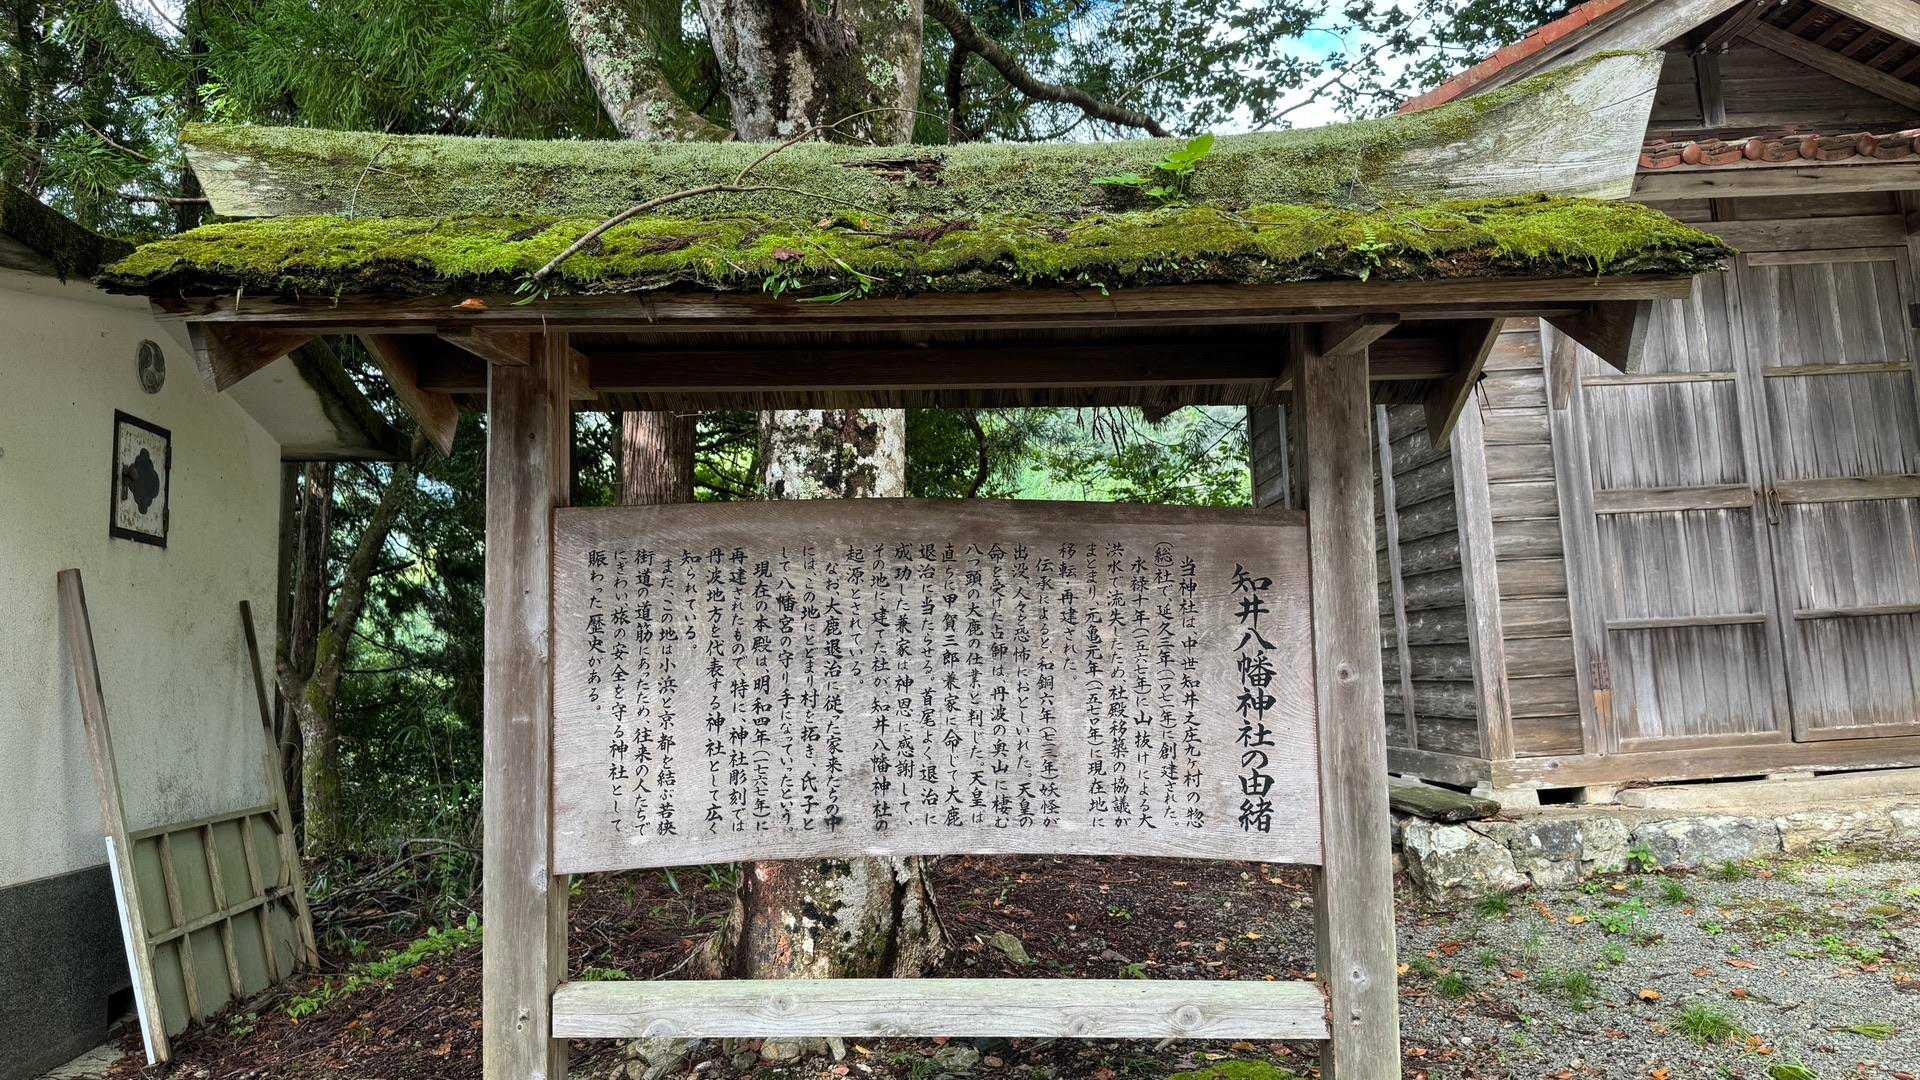 知井八幡神社の由緒
当神社は、中世知井之庄九ヶ村の惣
(総)社で、延久三年(一〇七一年)に創建された。
永禄十年(一五六七年)に山抜けによる大
洪水で流失したため、社殿移築の協議が
まとまり、元亀元年(一五七〇年)に現在地に
移転・再建された。
伝承によると、和銅六年(七一三年)妖怪が
出没、人々を恐怖におとしいれた。天皇の
命を受けた占師は、丹波の奥山に棲む
八つ頭の大鹿の仕業と判じた。天皇は
直ちに甲賀三郎兼家に命じて大鹿
退治に当たらせる。首尾よく退治に
成功した兼家は神恩に感謝して、
その地に建てた社が、知井八幡神社の
起源とされている。
なお、大鹿退治に従った家来たちの中
には、この地にとどまり村を拓き、氏子と
して八幡宮の守り手になっていったという。
現在の本殿は、明和四年(一七六七年)に
再建されたもので、特に、神社彫刻では
丹波地方を代表する神社として広く
知られている。
また、この地は小浜と京都を結ぶ若狭
街道の道筋にあったため、往来の人たちで
にぎわい旅の安全を守る神社として
賑わった歴史がある。